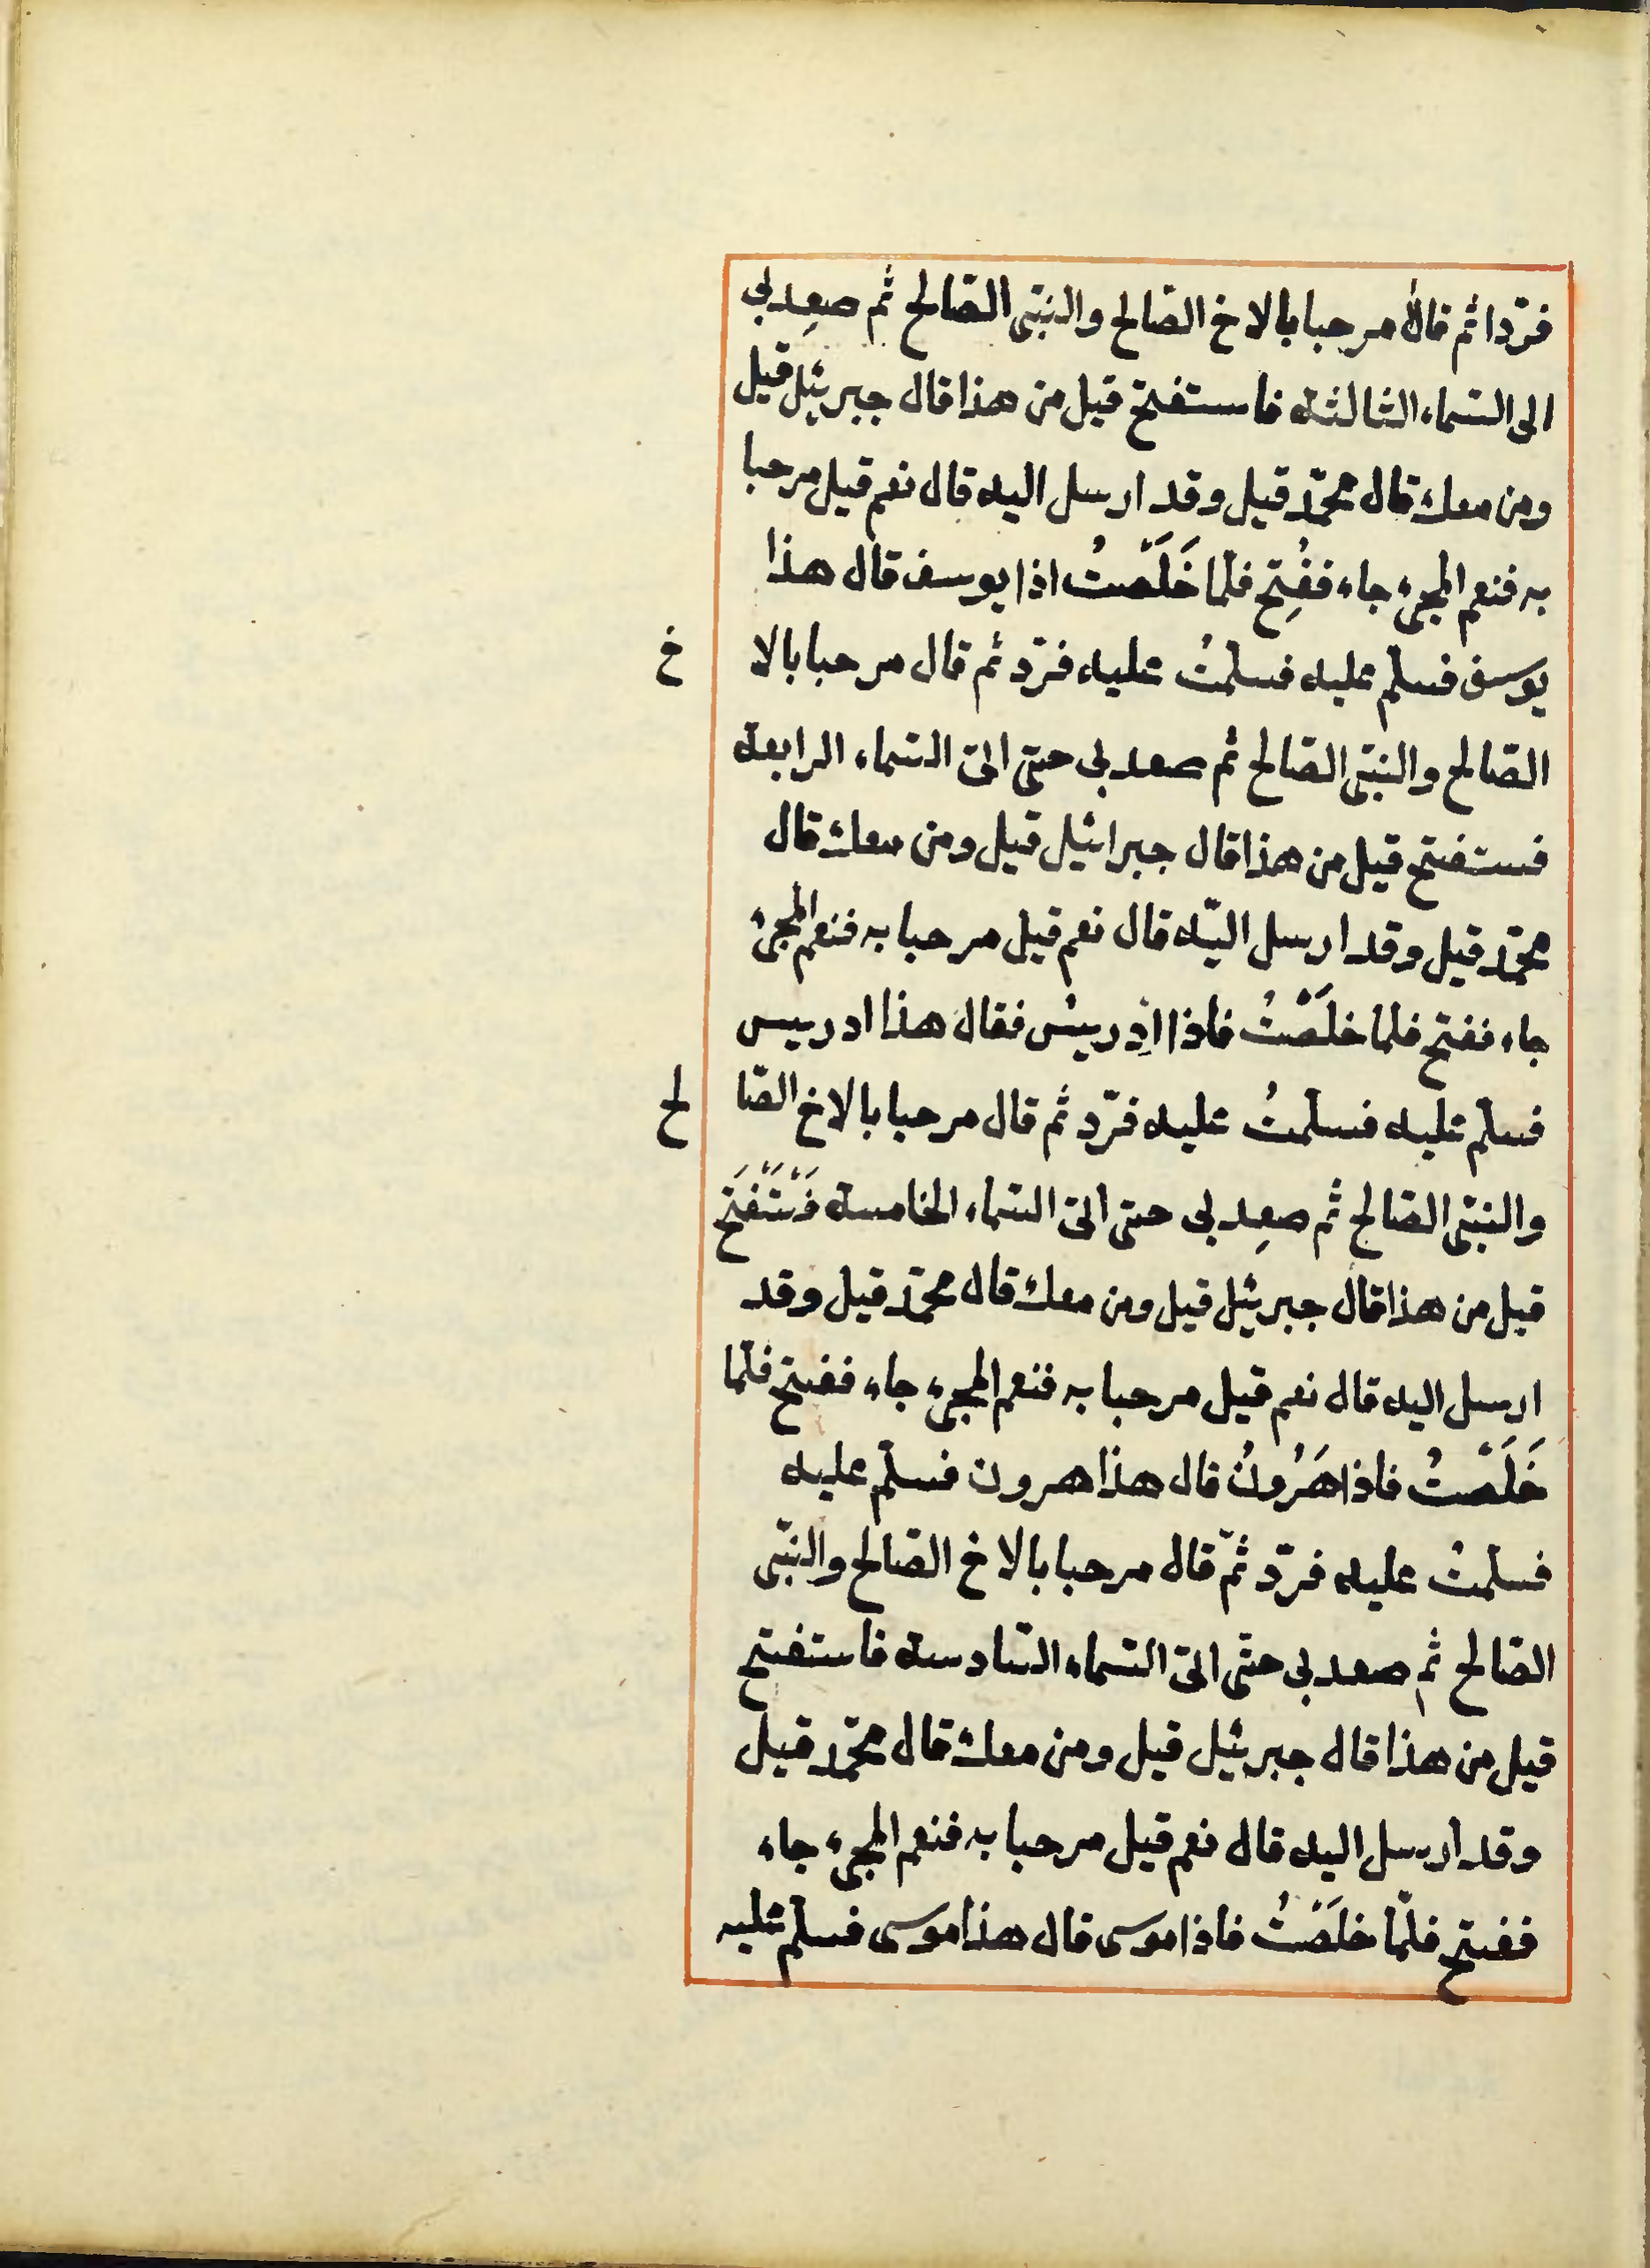 فردّا ثم قالا مرحبا بالاخ الصّالح والنبّى الصّالح ثم صعِد بى
الى السّماء الثالثه فاستفتح قيل من هذا قال جبرئيل قيل
ومن معك قال محمّد قيل وقد ارسل اليه قال نعم قيل مرحبا
به فنعم المجىء جاء ففُتِح فلمّا خَلَصْتُ اذا يوسف قال هذا
يوسف فسلّم عليه فسلّمتُ عليه فردّ ثم قال مرحبا بالاخ
الصّالح والنبّى الصّالح ثم صعد بى حتى اتى السّماء الرابعة
فستفتح قيل من هذا قال جبرائيل قيل ومن معك قال
محمّد قيل وقد ارسل اليّه قال نعم قيل مرحبا به فنعم المجئ
جاء ففتح فلما خلَصْتُ فاذا اِدريسُ فقال هذا ادريس
فسلّم عليه فسلّمتُ عليه فردّ ثم قال مرحبا بالاخ الصّالح
والنبّى الصّالح ثم صعِد بى حتى اتى السّماء الخامسة فَسْتَفْتَح
قيل من هذا قال جبرئيل قيل ومن معك قال محمّد قيل وقد
ارسل اليه قال نعم قيل مرحبا به فنعم المجىء جاء ففتح فلمّا
خَلَصْتُ فاذا هَرُونُ قال هذا هرون فسلّم عليه
فسلّمتُ عليه فردّ ثمّ قال مرحبا بالاخ الصّالح والنبّى
الصّالح ثم صعد بى حتّى اتى السّماء السّادسة فاستفتح
قيل من هذا قال جبرئيل قيل ومن معك قال محمّد قيل
وقد ارسل اليه قال نعم قيل مرحبا به فنعم المجىء جاء
ففتح فلمّا خلَصْتُ فاذا موسى قال هذا موسى فسلّم عليه